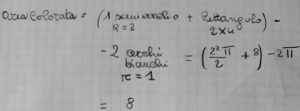 Area Colorata = (1 semicerchio + Rettangolo) -
R = 2 2 x 4
- 2 cerchi bianchi = (2²π/2 + 8) - 2π
r = 1
= 8